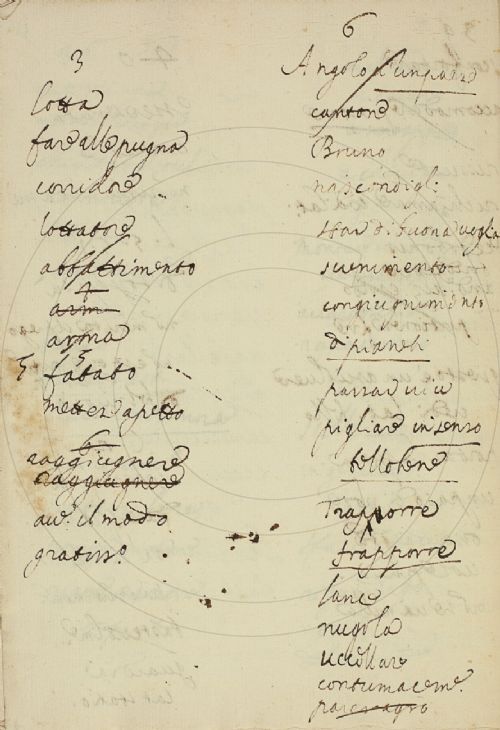 3
lotta
fare alle pugna
corridore
lottatore
abbattimento
arm
arma
5 fatato
mettere apetto
raggiugnere
raggiugnere
ave. il modo
gratiss.o
6
Angolo d'un pazzo
cantone
Bruno
nascondigl:
star di buona voglia
svenimento
congiugnimento
di pianeti
passar via
pigliare in senso
bello bene
Trapporre
frapporre
lance
nugola
uccellare
contumaceme.